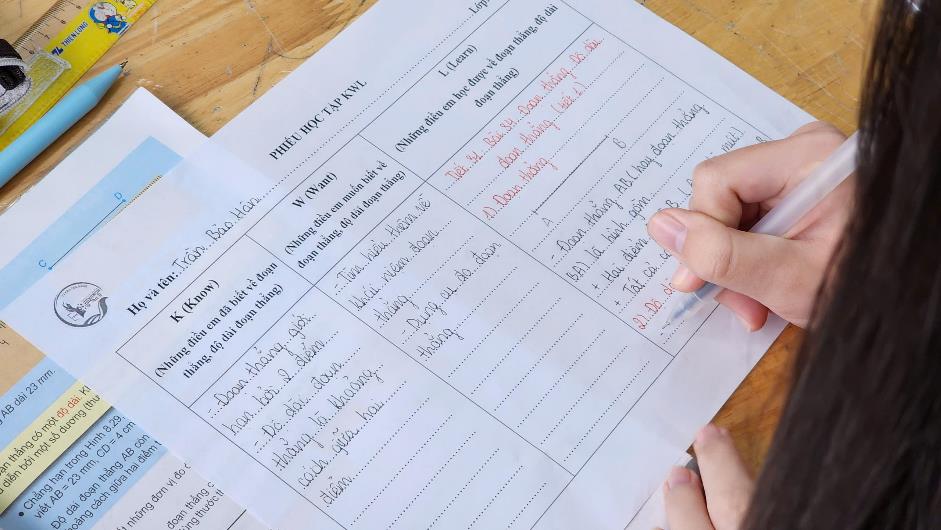 THIEN LONG
PHIẾU HỌC TẬP KWL
Lớp:
Họ và tên: Trần Bảo Hân
K (Know)
(Những điều em đã biết về đoạn
thẳng, độ dài đoạn thẳng)
- Đoạn thẳng giới
hạn bởi 2 điểm.
- Độ dài đoạn
thẳng là khoảng
cách giữa hai
điểm.
W (Want)
(Những điều em muốn biết về
đoạn thẳng, độ dài đoạn thẳng)
- Tìm hiểu thêm về
khái niệm đoạn
thẳng
- Dụng cụ đo đoạn
thẳng.
L (Learn)
(Những điều em học được về đoạn thẳng, độ dài
đoạn thẳng)
Bài 34. Đoạn thẳng. Độ dài
đoạn thẳng (tiết 1)
1) Đoạn thẳng
A B
- Đoạn thẳng AB (hay đoạn thẳng
BA) là hình gồm
+ Hai điểm
+ Tất cả
2) Độ
C D
4
AB dài 23 mm.
thẳng có một độ dài.
diễn bởi một số dương
• Chẳng hạn trong Hình 8.29,
viết AB = 23 mm, CD = 4 cm
Độ dài đoạn thẳng AB còn
khoảng cách giữa hai điểm
những đơn vị đo
đoạn thẳng